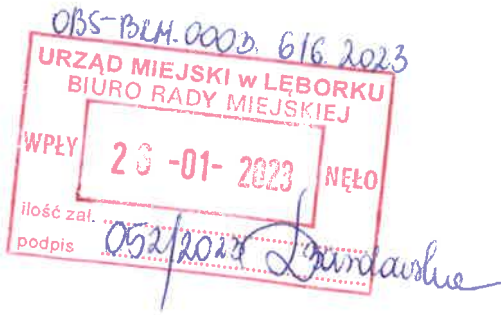 OBS-BRM.0003. 616.2023
URZĄD MIEJSKI w LĘBORKU
BIURO RADY MIEJSKIEJ
WPŁY 2 -01- 2023 NĘŁO
ilość zał.
podpis 052/2023